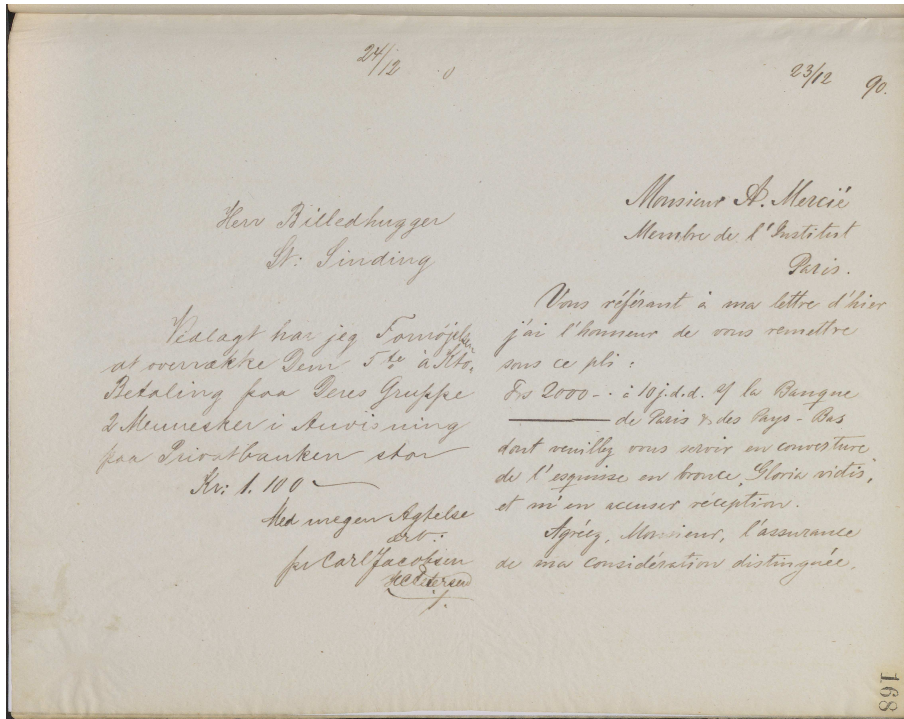 24/12 0
Herr Billedhugger
St: Sinding
Vedlagt har jeg Fornøjelsen
at overrække Dem 5te à Kto.
Betaling paa Deres Gruppe
2 Mennesker i Anvisning
paa Privatbanken stor
Kr: 1.100
Med megen Agtelse
ærb:
pr Carl Jacobsen
HCPetersen
23/12 90.
Monsieur A. Mercié
Membre de l'Institut
Paris.
Vous référant à ma lettre d'hier
j'ai l'honneur de vous remettre
sous ce pli:
Frs 2000 - à 10 j.d.d. s/ la Banque
de Paris & des Pays-Bas
dont veuillez vous servir en couverture
de l'esquisse en bronce, Gloria victis,
et m'en accuser réception.
Agréez, Monsieur, l'assurance
de ma considération distinguée.
168